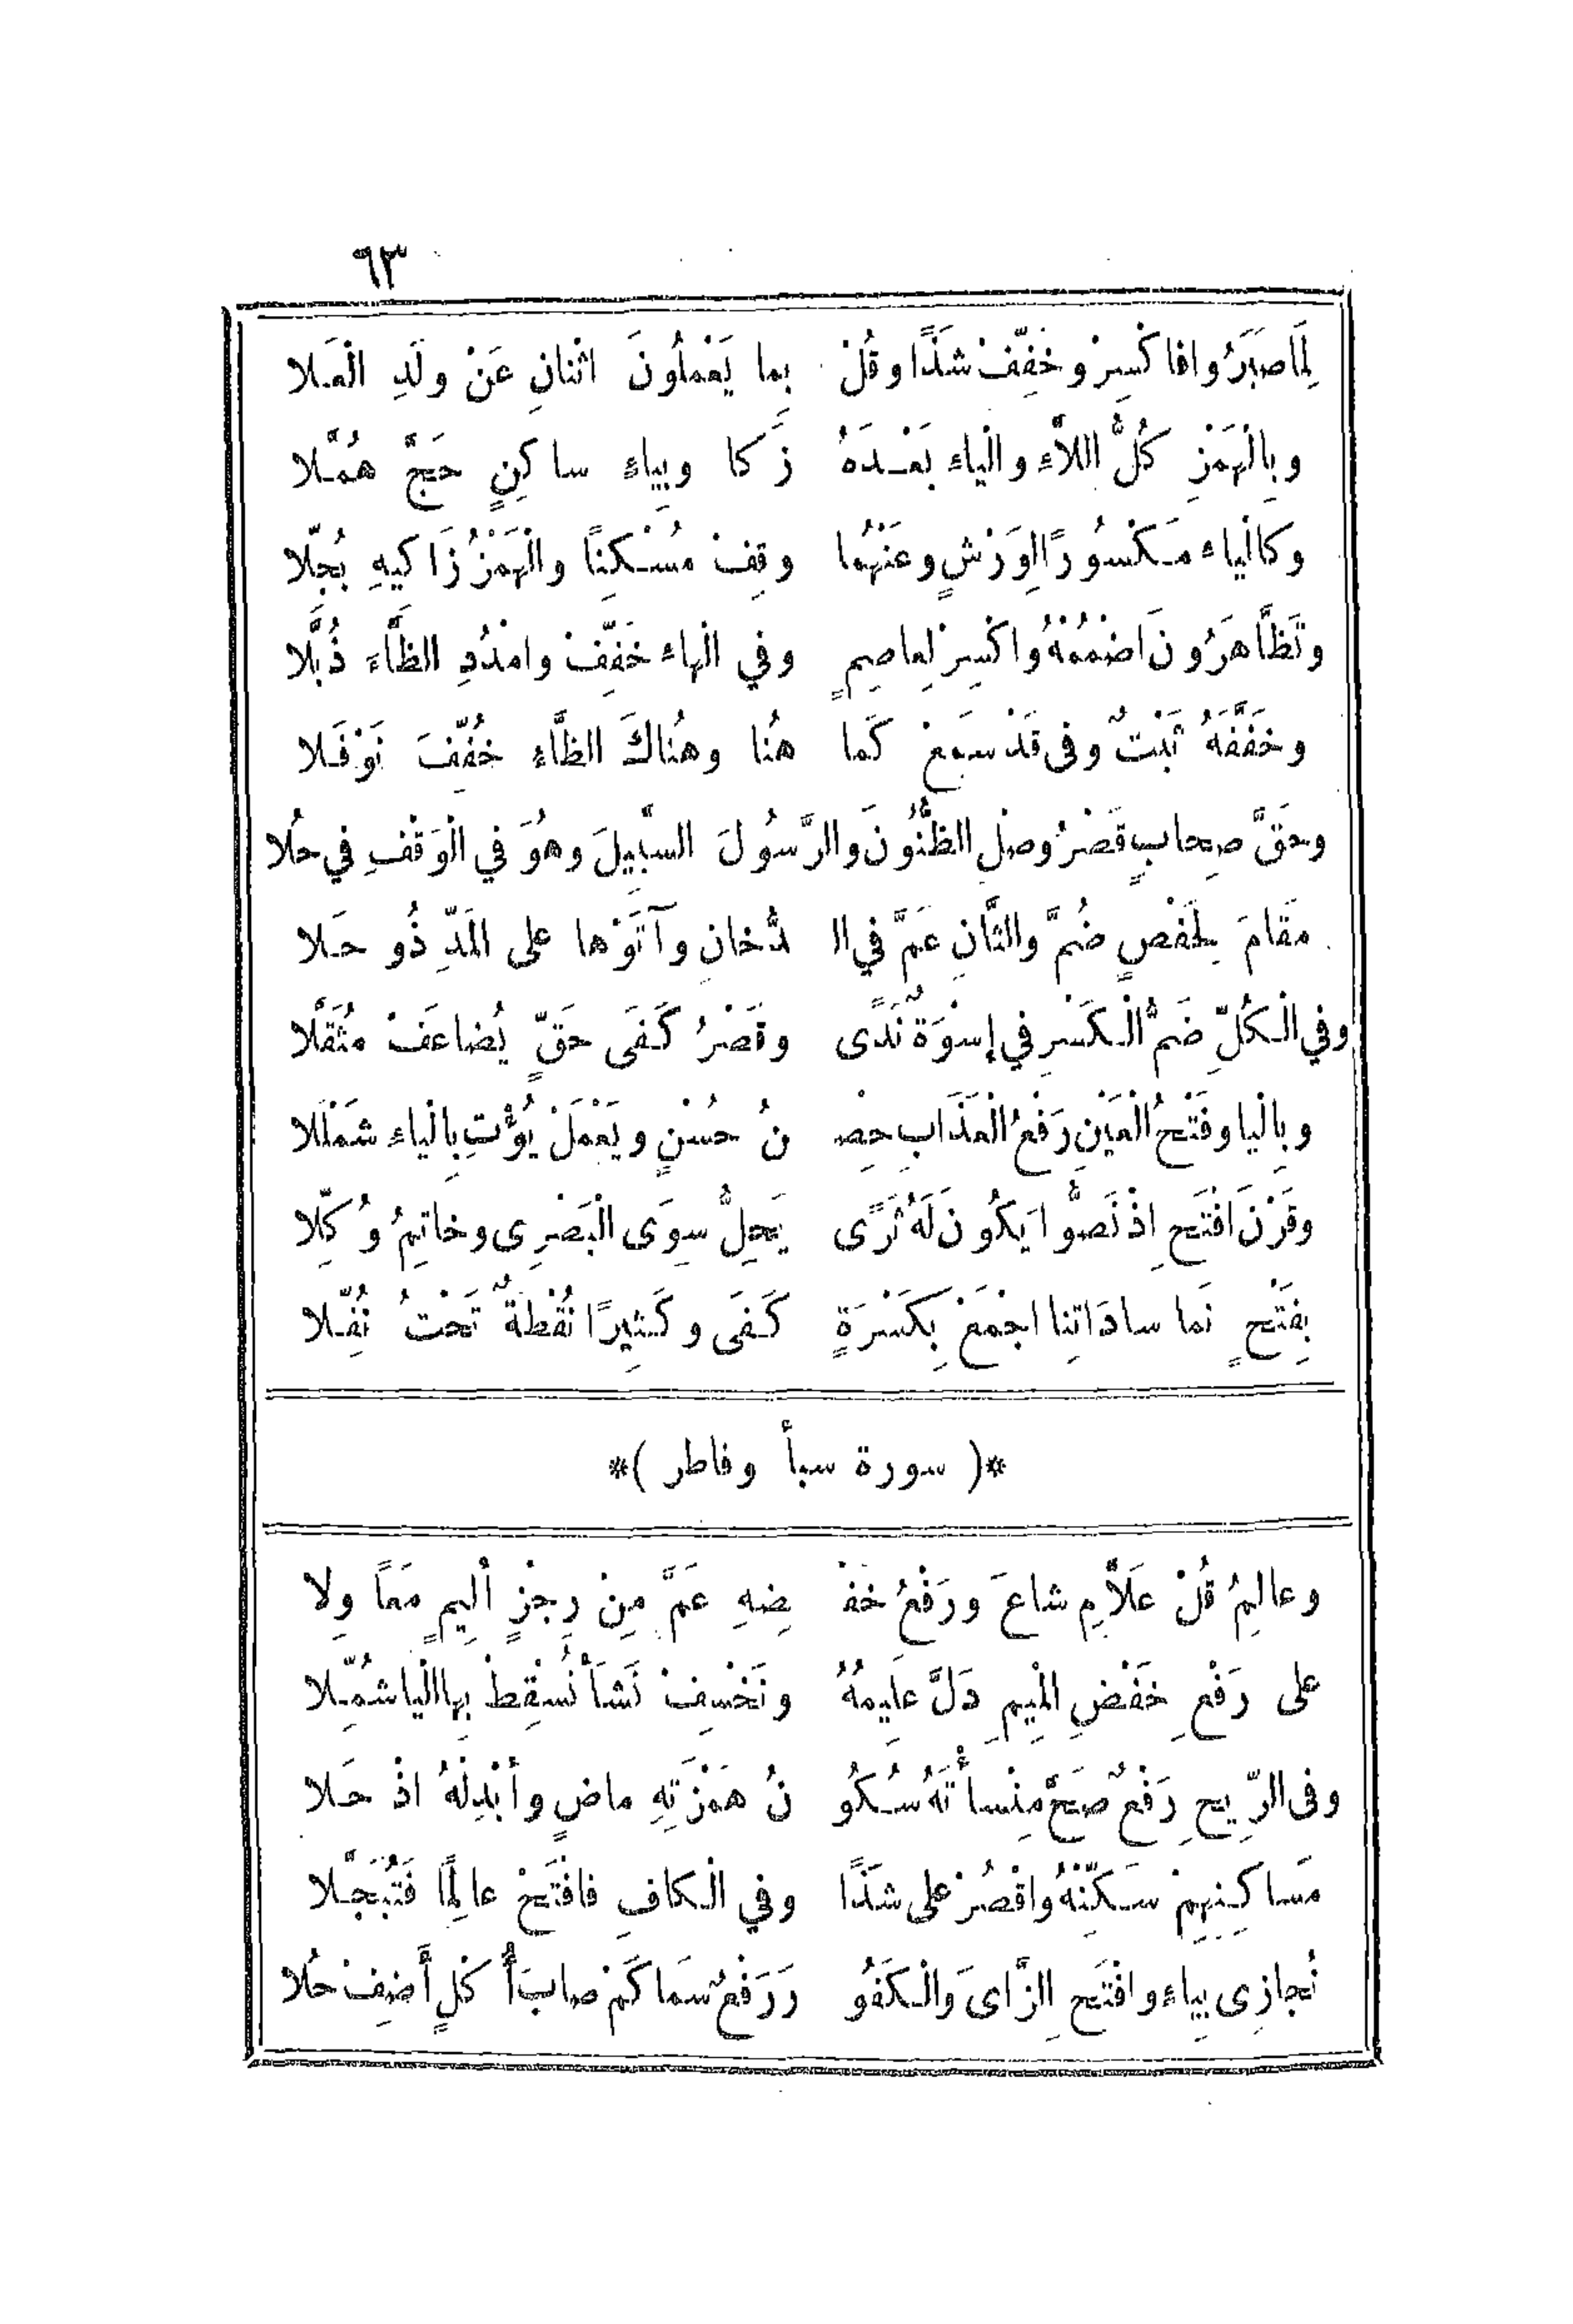 ٦٣
لِمَا صَبَرُوا فاكْسِرْ وخَفِّفْ شَذًا وقُلْ بِما يَعْمَلُونَ اثْنانِ عَنْ ولَدِ الْعَلا
وبِالْهَمْزِ كُلُّ اللاَّءِ والْياءِ بَعْدَهُ زَكا وبِياءٍ ساكِنٍ حَجَّ هُمَّلا
وكالْياءِ مَكْسُورًا لِوَرْشٍ وعَنْهُما وقِفْ مُسْكِنًا والْهَمْزُ زَاكِيهِ بُجِّلا
وتَظَّاهَرُونَ اضْمُمْهُ واكْسِرْ لِعاصِمٍ وفي الْهاءِ خَفِّفْ وامْدُدِ الظَّاءَ ذُبَّلا
وخَفَّفَهُ ثَبْتٌ وفى قَدْ سَمِعْ كَما هُنا وهُناكَ الظَّاءِ خُفِّفَ نَوْفَلا
وحَقَّ صِحابٍ قَصْرُ وصْلِ الظُّنُونَ والرَّسُولَ السَّبِيلَ وهُوَ في الْوَقْفِ في حُلا
مَقَامَ لِحَفْصٍ ضُمَّ والثَّانِ عَمَّ في ال دُّخانِ وآتَوْها على المَدِّ ذُو حَلا
وفي الْكُلِّ ضَمُّ الْكَسْرِ في إسْوَةٌ نَدًى وقَصْرُ كَفَى حَقٍّ يُضاعَفْ مُثَقَّلا
وبِالْيا وفَتْحُ الْعَيْنِ رَفْعُ الْعَذَابِ حِصْ نُ حُسْنٍ ويَعْمَلْ يُؤْتِ بِالْياءِ شَمْلَلا
وقَرْنَ افْتَحِ اذْ نَصُّوا يَكُونَ لَهُ ثَرًى يَحِلُّ سِوَى الْبَصْرِى وخاتِمُ وُكِّلا
بِفَتْحٍ نَما سادَاتِنا اجْمَعْ بِكَسْرَةٍ كَفَى وكَثِيرًا نُقْطَةٌ تَحْتُ نُفِّلا
*( سورة سبأ وفاطر )*
وعالِمُ قُلْ عَلاَّمِ شاعَ ورَفْعُ خَفْ ضِهِ عَمَّ مِنْ رِجْزٍ ألِيمٍ مَعاً وِلا
على رَفْعِ خَفْضِ الْمِيمِ دَلَّ عَلِيمُهُ ونَخْسِفْ نَشَأْ نُسْقِطْ بِها الْيا شُمِّلا
وفى الرِّيحِ رَفْعٌ صَحَّ مِنْسأْتَهُ سُكُو نُ هَمْزَتِهِ ماضٍ وأبْدِلْهُ اذْ حَلا
مَساكِنِهِمْ سَكِّنْهُ واقْصُرْ على شَذًا وفي الْكافِ فافْتَحْ عالِمًا فَتُبَجَّلا
نُجازِى بِياءٍ وافْتَحِ الزَّاىَ وَالْكَفُو رَ رَفْعٌ سَمَا كَمْ صابَ أُكْلٍ أَضِفْ حُلا